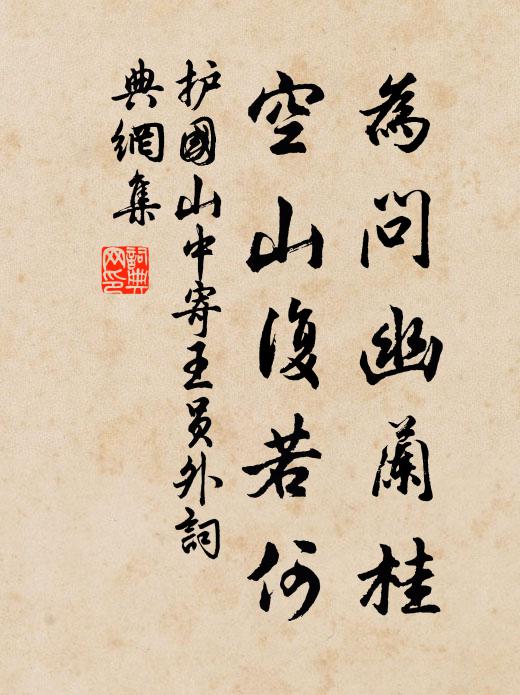 為问幽蘭桂
空山復若何
护國山中寄王员外詞
典網集
詞典
网印